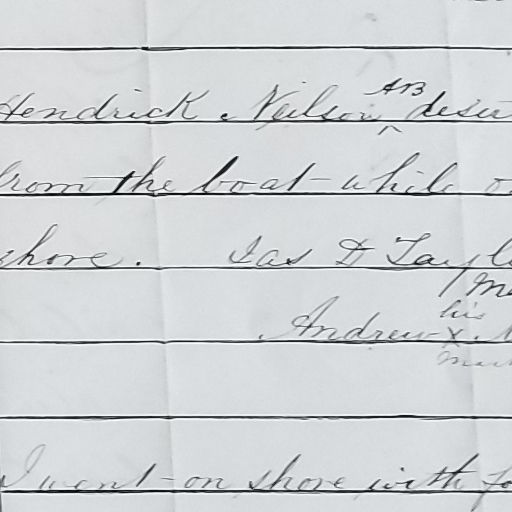 Hendrick Neilson ^AB deser
from the boat while o
shore. Jas D Taylo
Ma
his
Andrew X
mark
I went on shore with fo